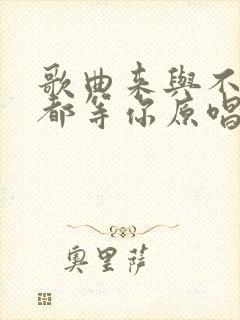 歌曲来與不
都等你原唱
奥里薩